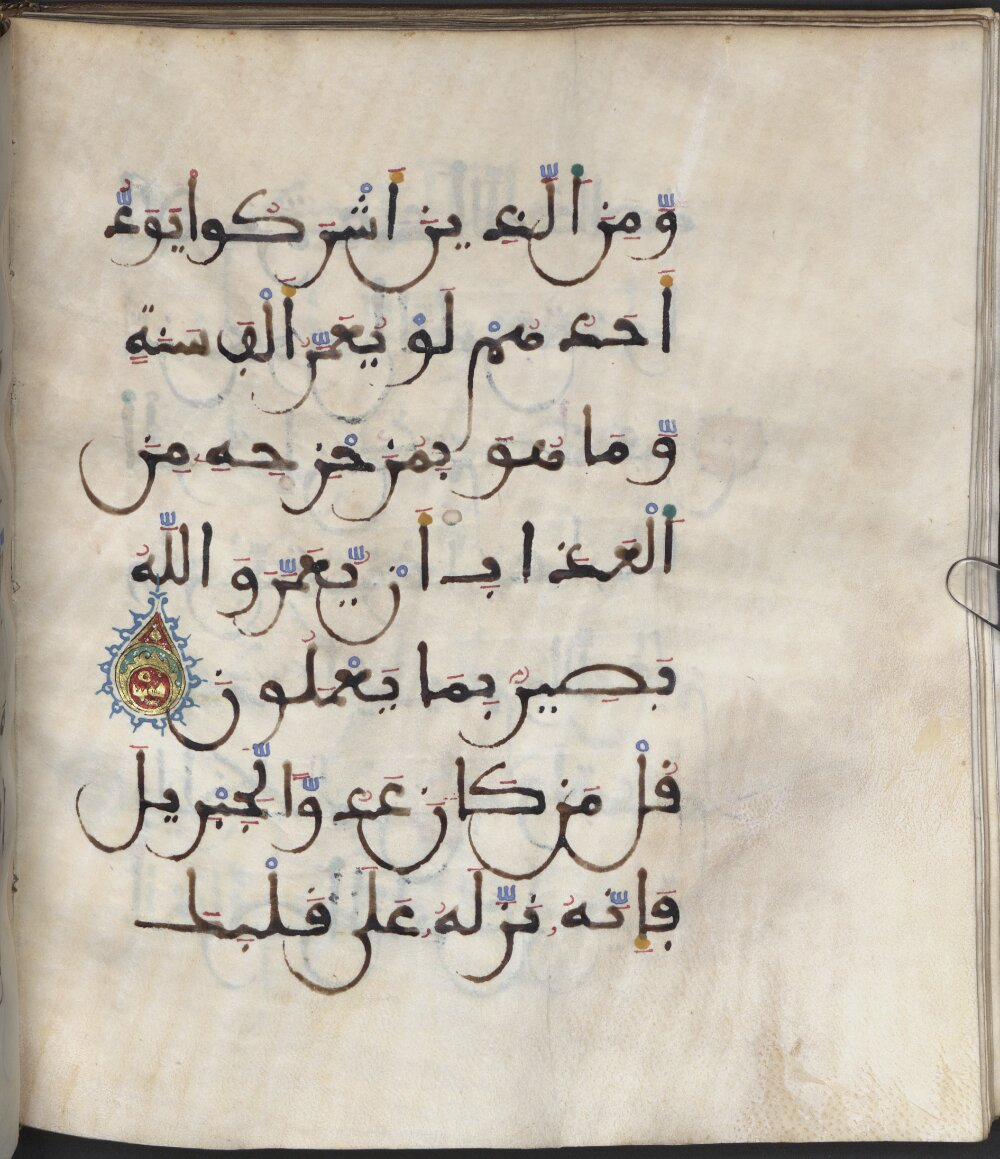 وَمِنَ الَّذِينَ أَشْرَكُوا يَوَدُّ
أَحَدُهُمْ لَوْ يُعَمَّرُ أَلْفَ سَنَةٍ
وَّمَا هُوَ بِمُزَحْزِحِهِ مِنَ
الْعَذَابِ أَنْ يُّعَمَّرَ وَاللَّهُ
بَصِيرٌ بِمَا يَعْمَلُونَ
قُلْ مَن كَانَ عَدُوًّا لِّجِبْرِيلَ
فَإِنَّهُ نَزَّلَهُ عَلَى قَلْبِكَ